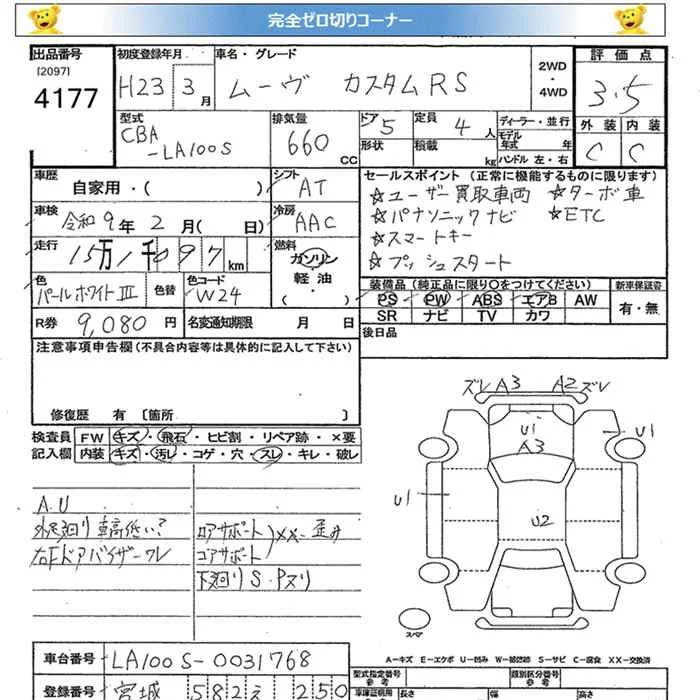 完全ゼロ切りコーナー
出品番号 初度登録年月 車名・グレード 2WD・4WD 評価点
[2097]
4177 H23 3月 ムーヴ カスタムRS 3.5
型式 排気量 ドア 定員 ディーラー・並行 外装 内装
CBA-LA100S 660CC 5 4人 モデル年式 年 C C
形状 積載 kg ハンドル 左・右
車歴 シフト セールスポイント (正常に機能するものに限ります)
自家用・( ) AT ☆ユーザー買取車両 ☆ターボ車
車検 冷房 ☆パナソニックナビ ☆ETC
令和9年2月(日) AAC ☆スマートキー
走行 燃料 ☆プッシュスタート
15万1千097km ガソリン・軽油・( )
色 色替 色コード 装備品 (純正品に限り○をつけてください) 新車保証書
パールホワイトIII W24 PS PW ABS エアB AW 有・無
SR ナビ TV カワ
R券 9,080円 名変通知期限 月 日 後日品
注意事項申告欄(不具合内容等は具体的に記入して下さい)
修復歴 有 [箇所 ]
検査員 FW キズ・飛石・ヒビ割・リペア跡・×要
記入欄 内装 キズ・汚レ・コゲ・穴・スレ・キレ・破レ
ズレ A3 A2 ズレ
U1
A3
U1
U1
U2
スペア
A.U
外廻り 車高低い?
右Fドアバイザーワレ
ロアサポート
コアサポート
XX・歪み
下廻りS・Pヌリ
A-キズ E-エクボ U-凹み W-補修跡 S-サビ C-腐食 XX-交換済
車台番号 LA100S-0031768 型式指定番号 類別区分番号
参考 参考
登録番号 宮城 582 え 250 車庫証明用 長さ 幅 高さ